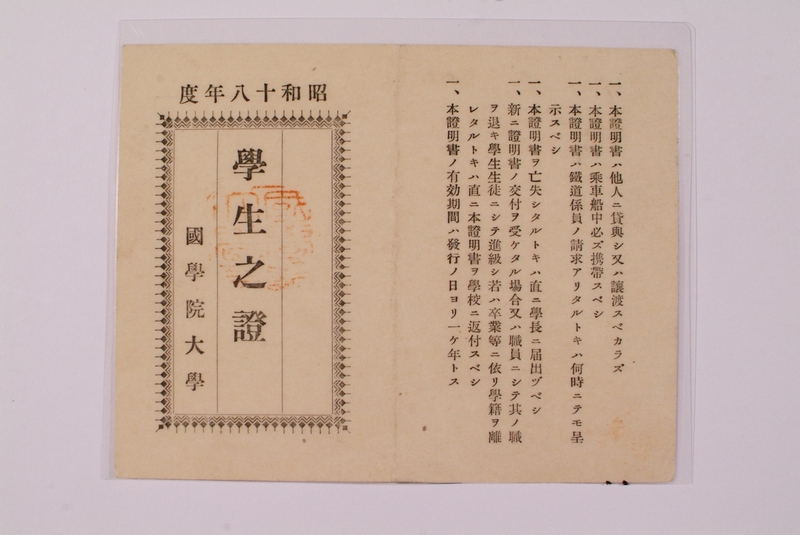 一、本證明書ハ他人ニ貸與シ又ハ讓渡スベカラズ
一、本證明書ハ乘車船中必ズ携帶スベシ
一、本證明書ハ鐵道係員ノ請求アリタルトキハ何時ニテモ呈
示スベシ
一、本證明書ヲ亡失シタルトキハ直ニ學長ニ届出ヅベシ
一、新ニ證明書ノ交付ヲ受ケタル場合又ハ職員ニシテ其ノ職
ヲ退キ學生生徒ニシテ進級シ若ハ卒業等ニ依リ學籍ヲ離
レタルトキハ直ニ本證明書ヲ學校ニ返付スベシ
一、本證明書ノ有効期間ハ發行ノ日ヨリ一ケ年トス
昭和十八年度
學生之證
國學院大學